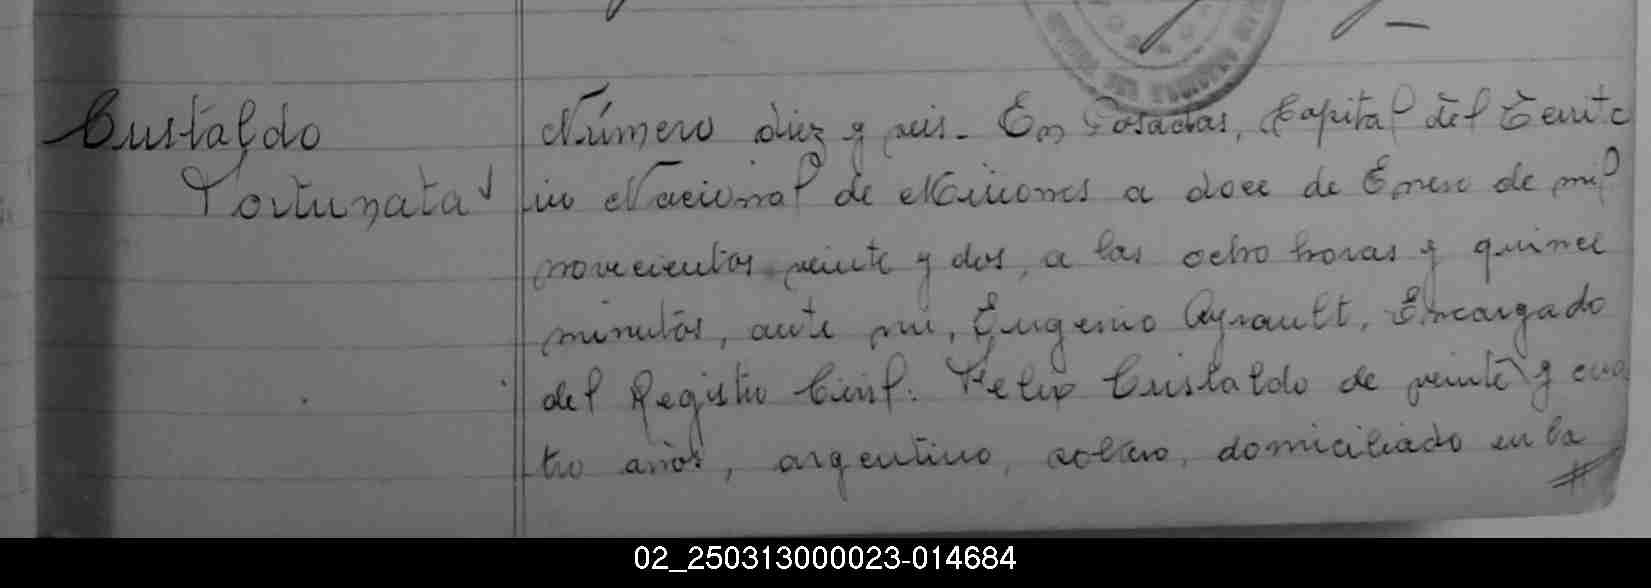 Cristaldo
Fortunata
Número diez y seis. En Posadas, Capital del Territo
rio Nacional de Misiones a doce de Enero de mil
novecientos veinte y dos, a las ocho horas y quince
minutos, ante mi, Eugenio Ayrault, Encargado
del Registro Civil. Felix Cristaldo de veinte y cua
tro años, argentino, soltero, domiciliado en la
02_250313000023-014684